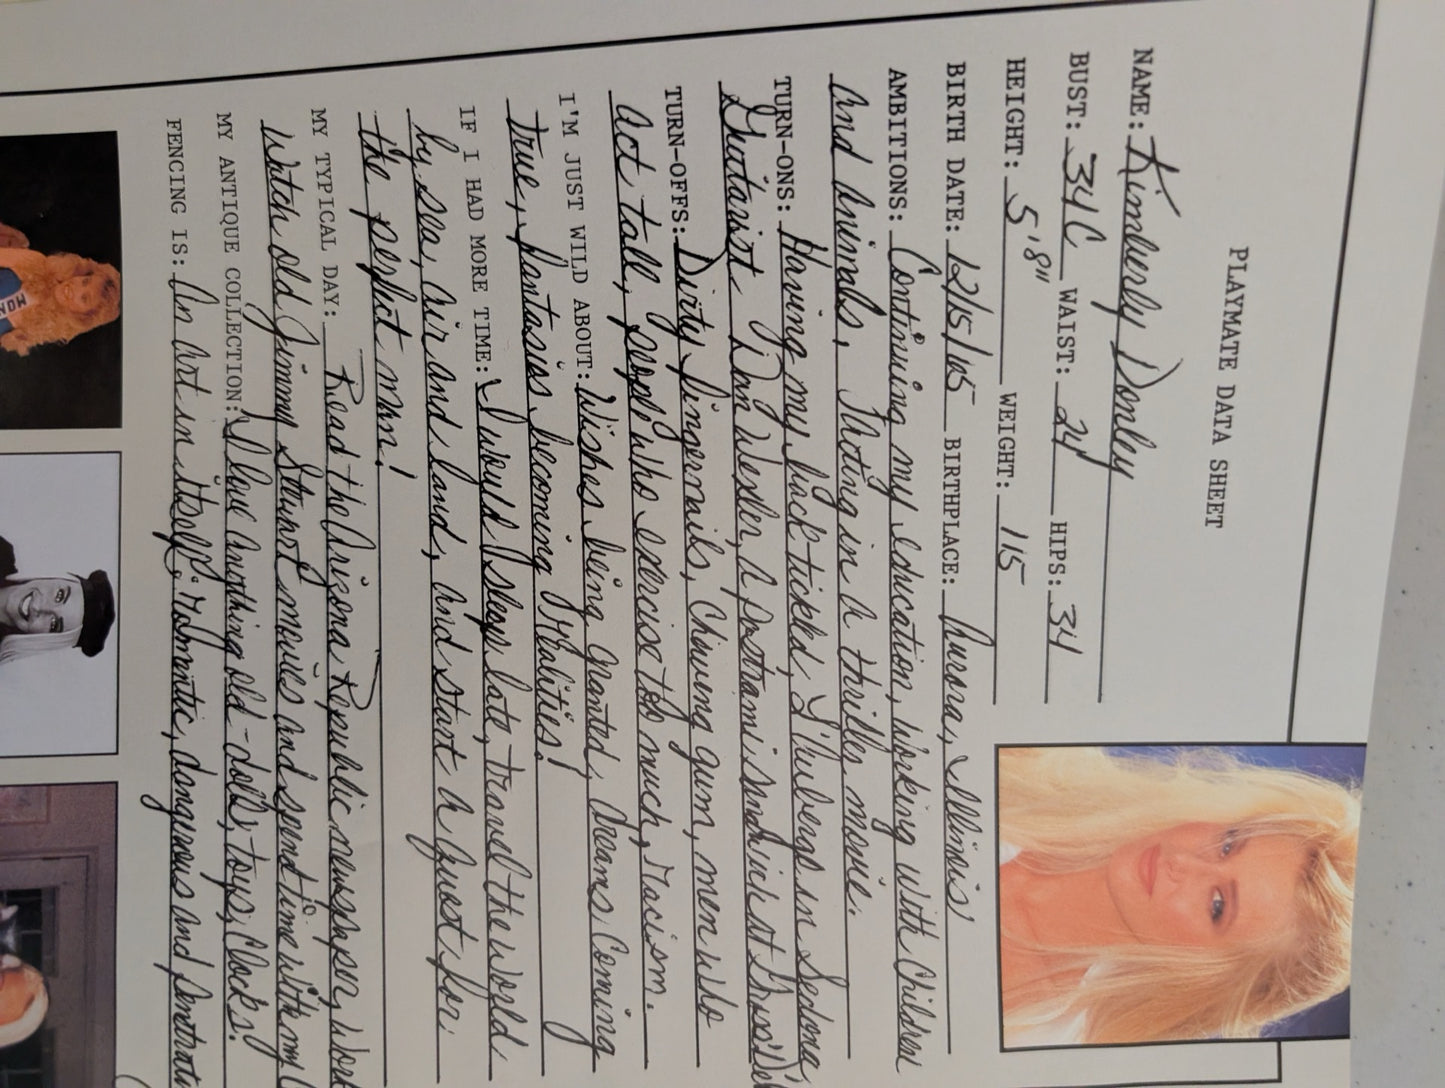 PLAYMATE DATA SHEET
NAME: Kimberly Donley
BUST: 34C WAIST: 24 HIPS: 34
HEIGHT: 5'8" WEIGHT: 115
BIRTH DATE: 12/15/65 BIRTHPLACE: Aurora, Illinois
AMBITIONS: Continuing my education, working with Children
And Animals, Acting in A thriller movie.
TURN-ONS: Having my back tickled, Icebergs in Sedona,
Guitarist Dan Wexler, A pastrami sandwich at
TURN-OFFS: Dirty fingernails, Chewing gum, men who
Act tall, people who exercise too much, racism.
I'M JUST WILD ABOUT: Wishes being granted, Dreams Coming
true, fantasies becoming realities!
IF I HAD MORE TIME: I would sleep late, travel the world
by sea, Air and land, And start A quest for
the perfect man!
MY TYPICAL DAY: Read the Arizona Republic newspaper, work
Watch old Jimmy Stewart movies And spend time with my
MY ANTIQUE COLLECTION: I love Anything old - dolls, toys, Clocks!
FENCING IS: An Art in itself: romantic, dangerous and
MOW